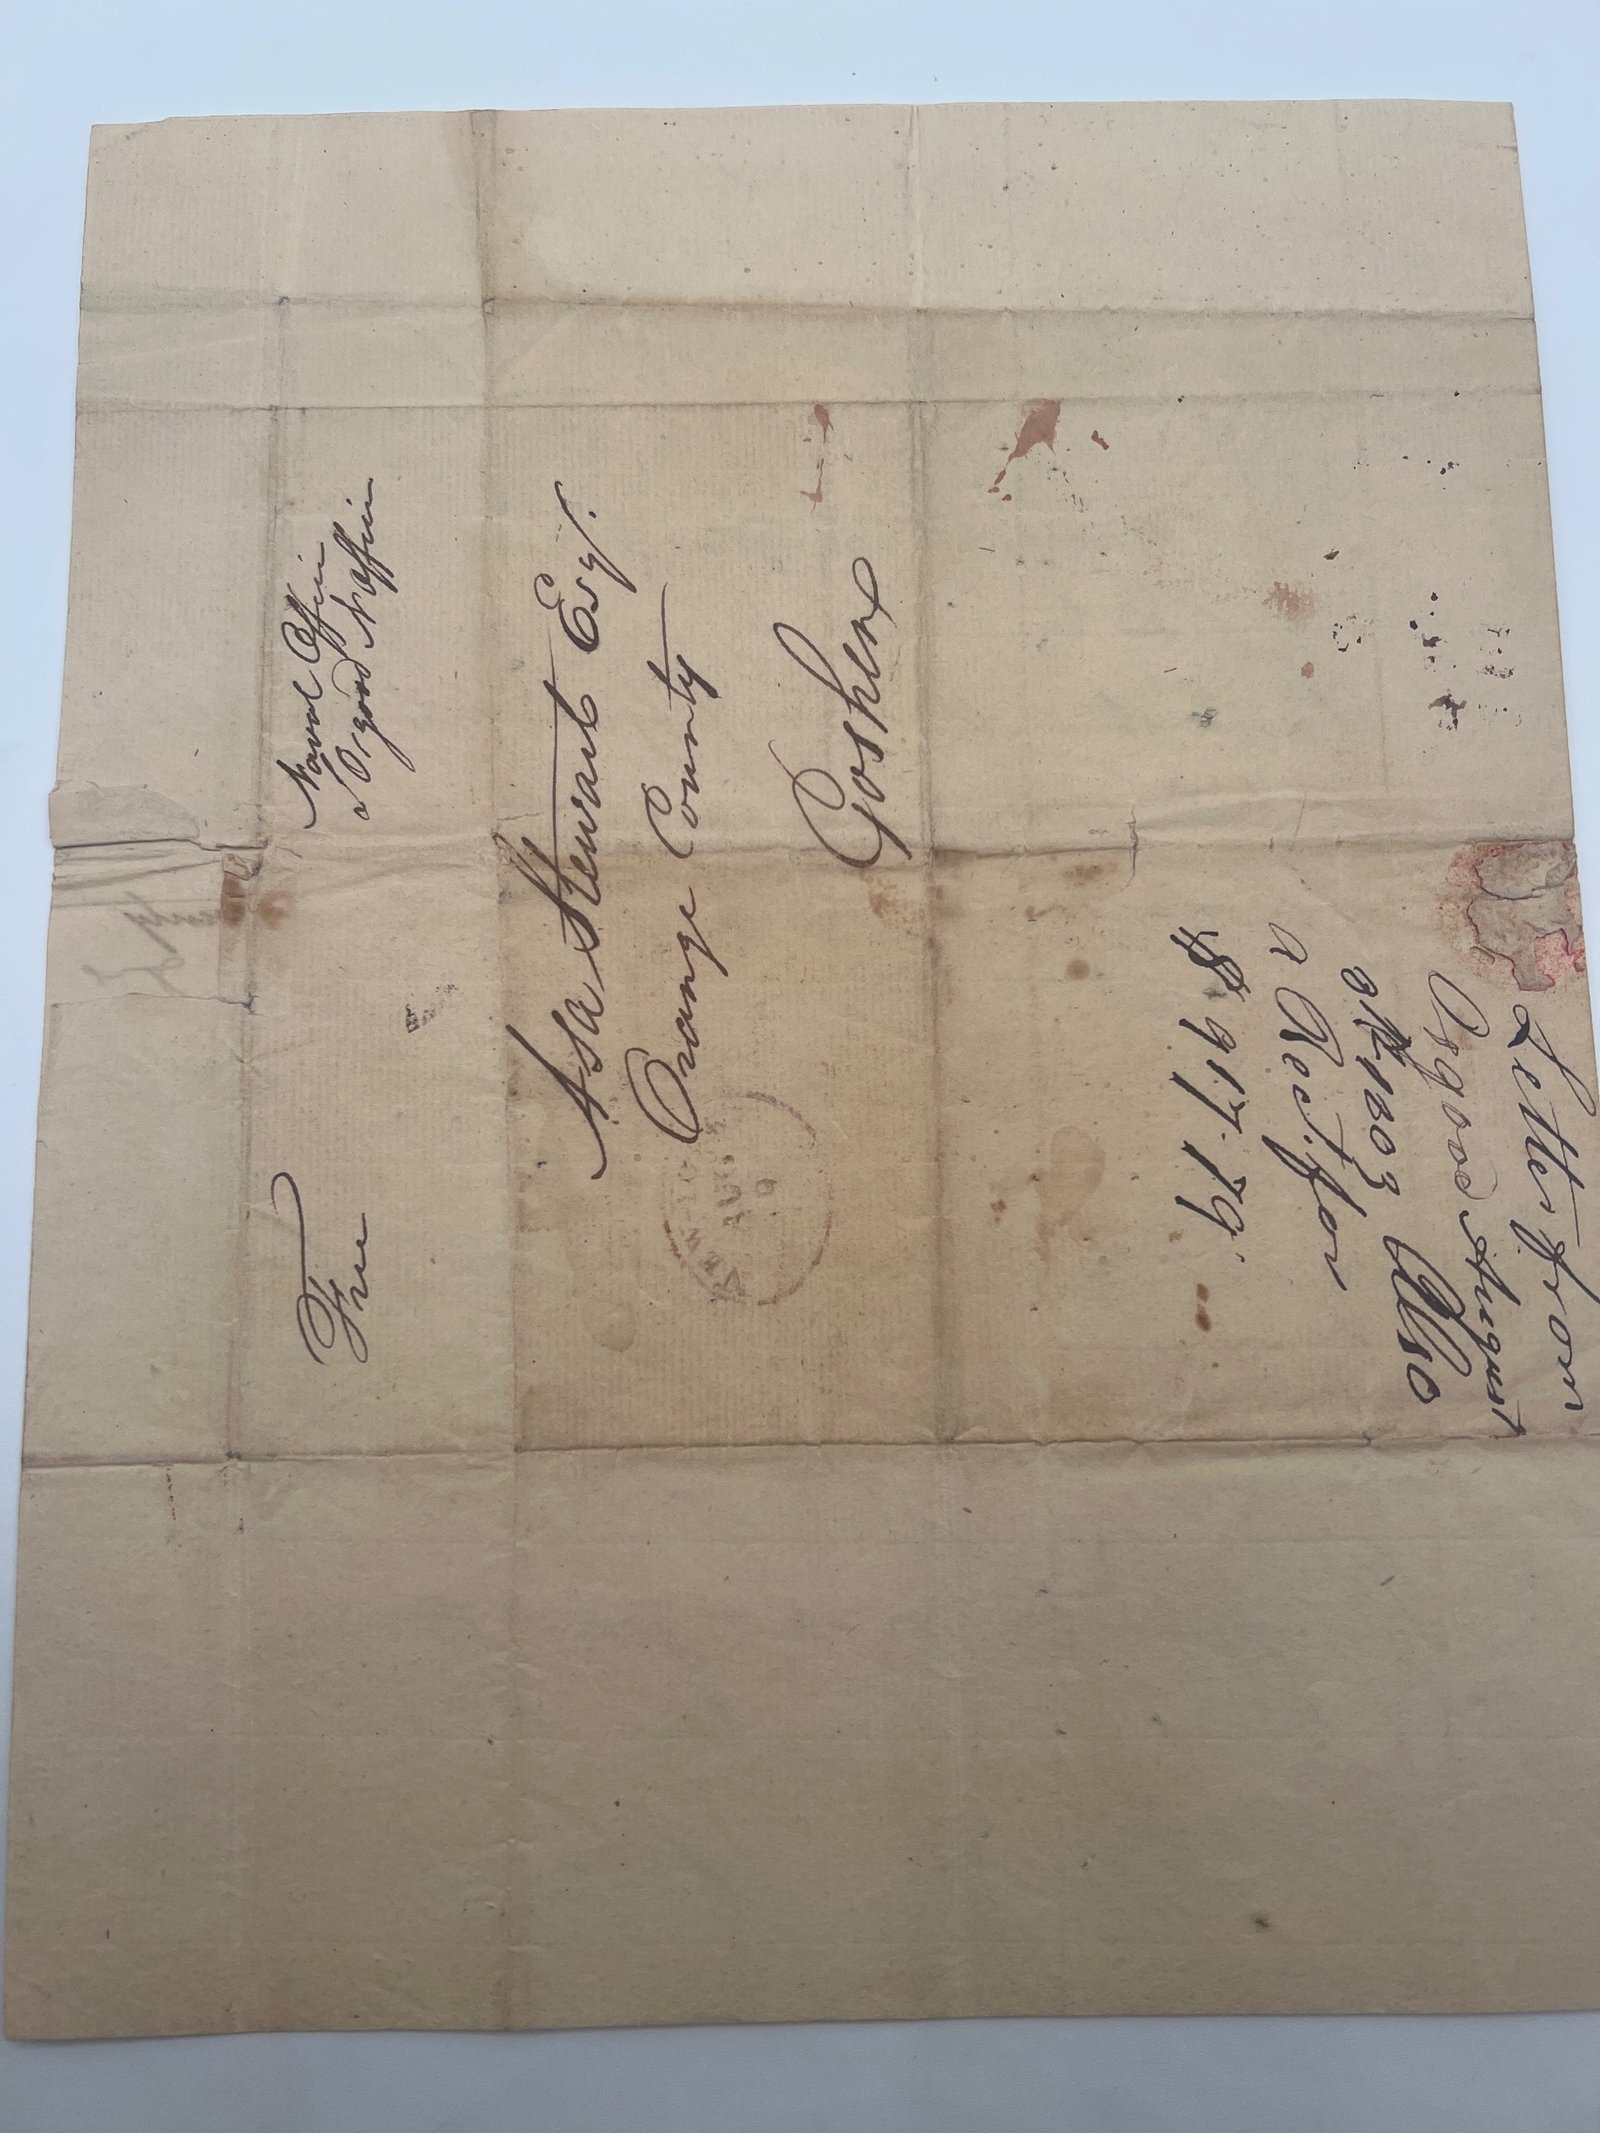 Naval Office
S. Osgood N. Officer
Free
Asa Stewart Esqr.
Orange County
Goshen
NEW-YORK
AUG
9
Letter from
Osgood August
1803 Also
a Rect. for
$ 917.79